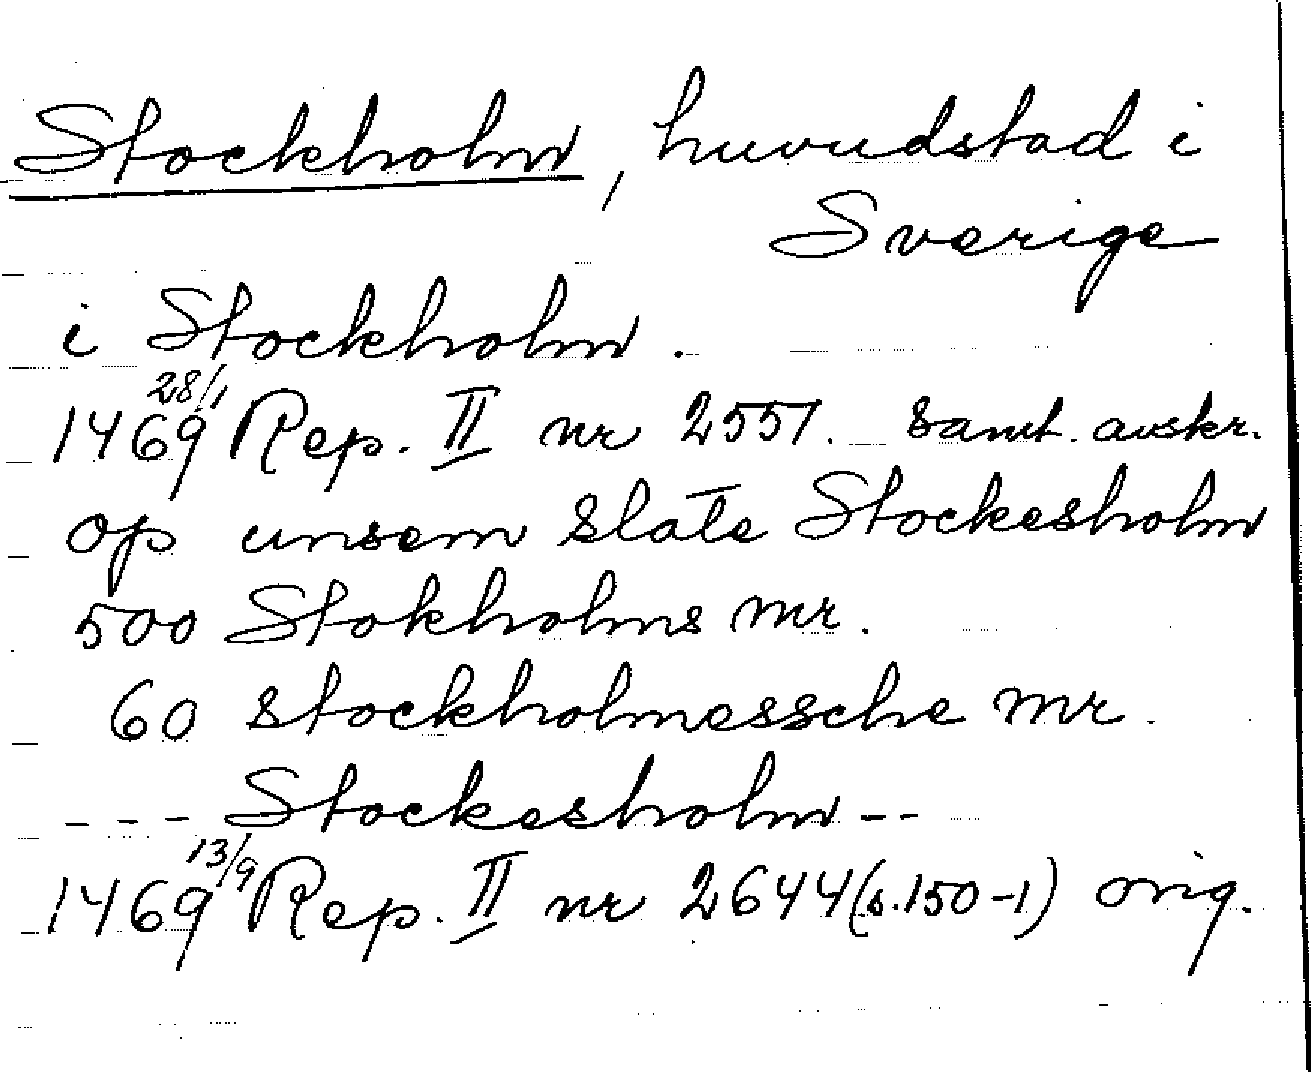 Stockholm, huvudstad i
Sverige
i Stockholm.
1469 28/1 Rep. II nr 2551. samt. avskr.
op unsem slate Stockesholm
500 Stokholms mr.
60 stockholmessche mr.
--- Stockesholm --
1469 13/9 Rep. II nr 2644 (s.150-1) orig.